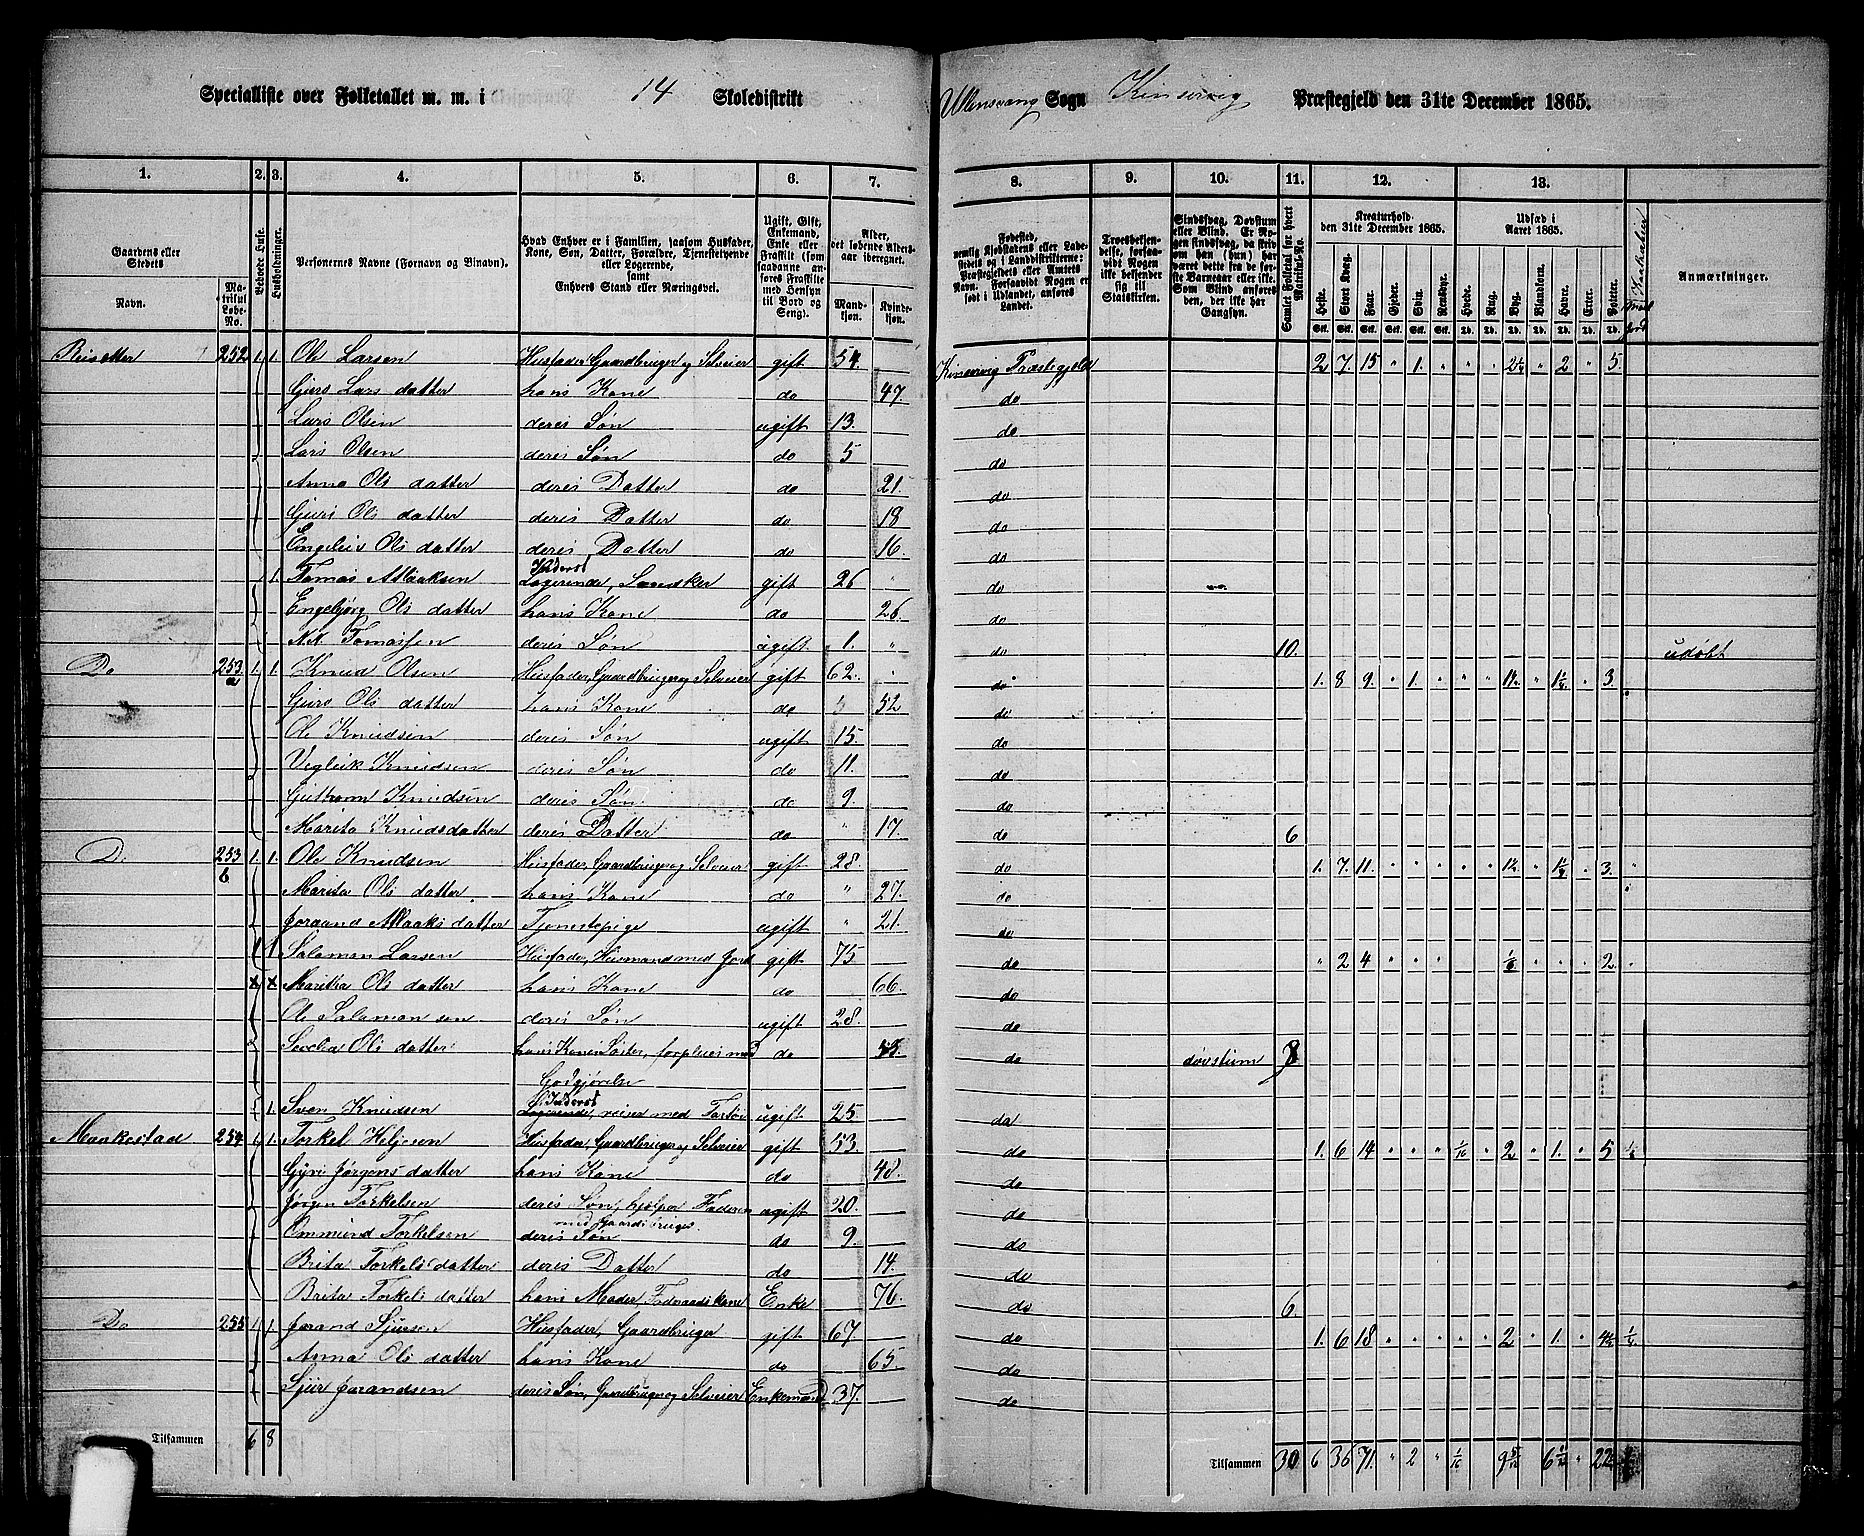 Specialliste over Folketallet m. m. i 14 Skoledistrikt Ullensvang Sogn Kinservig Præstegjeld den 31te December 1865.
1. 2. 3. 4. 5. 6. 7. 8. 9. 10. 11. 12. 13.
Gaardens eller Stedets
Navn.
Matrikul Løbe-No.
Beboede Huse.
Husholdninger.
Personernes Navne (Fornavn og Binavn).
Hvad Enhver er i Familien, saasom Husfader, Kone, Søn, Datter, Forældre, Tjenestetyende eller Logerende, samt Enhvers Stand eller Næringsvei.
Ugift, Gift, Enkemand, Enke eller Fraskilt (som saadanne anføres Fraskilte med Hensyn til Bord og Seng).
Alder, det løbende Alders-aar iberegnet.
Mandkjøn.
Kvindekjøn.
Fødested, nemlig Kjøbstadens eller Ladestedets eller i Landdistrikterne: Præstegjeldets eller Amtets Navn. Forsaavidt Nogen er født i Udlandet, anføres Landet.
Troesbekjendelse, forsaavidt Nogen ikke bekjender sig til Statskirken.
Sindssvag, Døvstum eller Blind. Er Nogen sindssvag, da skrives om han (hun) har været dette fra de første Barneaar eller ikke. Som Blind anføres den, der ikke har Gangsyn.
Samlet Folketal for hvert Matrikul-No.
Kreaturhold den 31te December 1865.
Heste. Stort Kvæg. Faar. Gjeder. Svin. Rensdyr.
Udsæd i Aaret 1865.
Hvede. Rug. Byg. Blandkorn. Havre. Erter. Poteter.
Anmærkninger.
Reisæter 252 1. 1. Ole Larsen Husfader, Gaardbruger og Selveier gift 54. Kinservig Præstegjeld 2 7. 15 " 1. " " " 2¼ " 2 " 5.
Guro Lars datter hans Kone do 47. do
Lars Olsen deres Søn ugift 13. do
Lars Olsen deres Søn do 5 do
Anna Ols datter deres Datter do 21. do
Guri Ols datter deres Datter do 18 do
Engeleis Ols datter deres Datter do 16. do
1. Tomas Aslaksen Inderst Logerende, Snedker gift 26 " do
Engebjørg Ols datter hans Kone do 26. do
N.N. Tomassen deres Søn ugift 1. " do 10. udøbt
Do 253 a 1. 1. Knud Olsen Husfader, Gaardbruger og Selveier gift 62. " do 1. 8 9. " 1. " " " 1½ " 1½ " 3.
Guro Ols datter hans Kone do 52 do
Ole Knudsen deres Søn ugift 15. do
Vegleik Knudsen deres Søn do 11. do
Guttorm Knudsen deres Søn do 9. do
Marita Knudsdatter deres Datter do " 17. do 6
D. 253 b 1. 1. Ole Knudsen Husfader, Gaardbruger og Selveier gift 28. do 1. 7. 11. " " " " " 1½ " 1½ " 3. "
Marita Ols datter hans Kone do " 27. do
Joraand Aslaks datter Tjenestepige ugift " 21. do
1 1 Salamon Larsen Husfader, Husmand med Jord gift 75. do " 2 4 " " " " " " " " 2. "
x x Maritha Ols datter hans Kone do 66. do
Ole Salamonsen deres Søn ugift 28. do
Ols datter hans Kones Søster, forpleies med Godtgjørelse do do døvstum 8
1. Sven Knudsen Inderst Logerende, reiser med Fartøi ugift 25. do
Maakestad 254 1. 1. Torkel Heljesen Husfader, Gaardbruger og Selveier gift 53. do 1. 6 14 " " " 1/16 " 2 " 1. " 5
Gyri Jørgens datter hans Kone do 48. do
Jørgen Torkelsen deres Søn, hjelper Faderen med Gaardsbruget ugift 20. do
Ommund Torkelsen deres Søn do 9. do
Brita Torkels datter deres Datter do 14. do
Brita Torkels datter hans Moder, Føderaadskone Enke 76. do 6.
Do 255 1. 1. Jorand Sjursen Husfader, Gaardbruger gift 67. do 1. 6 18 " " " " " 2 " 1. " 4½
Anna Ols datter hans Kone do 65. do
Sjur Jorandsen deres Søn, Gaardbruger og Selveier Enkemand 37. do
Tilsammen 6 8 Tilsammen 30 6 36 71. " 2 " 1/16